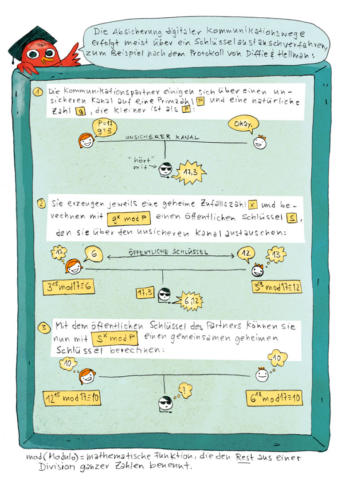 Die Absicherung digitaler Kommunikationswege
erfolgt meist über ein Schlüsselaustauschverfahren,
zum Beispiel nach dem Protokoll von Diffie & Hellman:
1 Die Kommunikationspartner einigen sich über einen un-
sicheren Kanal auf eine Primzahl P und eine natürliche
Zahl g, die kleiner ist als P:
P=17
g=3
Okay.
UNSICHERER KANAL
"hört"
mit
17,3
2 Sie erzeugen jeweils eine geheime Zufallszahl x und be-
rechnen mit g^x mod P einen öffentlichen Schlüssel S,
den sie über den unsicheren Kanal austauschen:
15 6 ÖFFENTLICHE SCHLÜSSEL 12 13
3^15 mod 17=6 17,3 3^13 mod 17=12
6,12
3 Mit dem öffentlichen Schlüssel des Partners können sie
nun mit S^x mod P einen gemeinsamen geheimen
Schlüssel berechnen:
10 10
12^15 mod 17=10 ? 6^13 mod 17=10
mod (Modulo) = mathematische Funktion, die den Rest aus einer
Division ganzer Zahlen benennt.